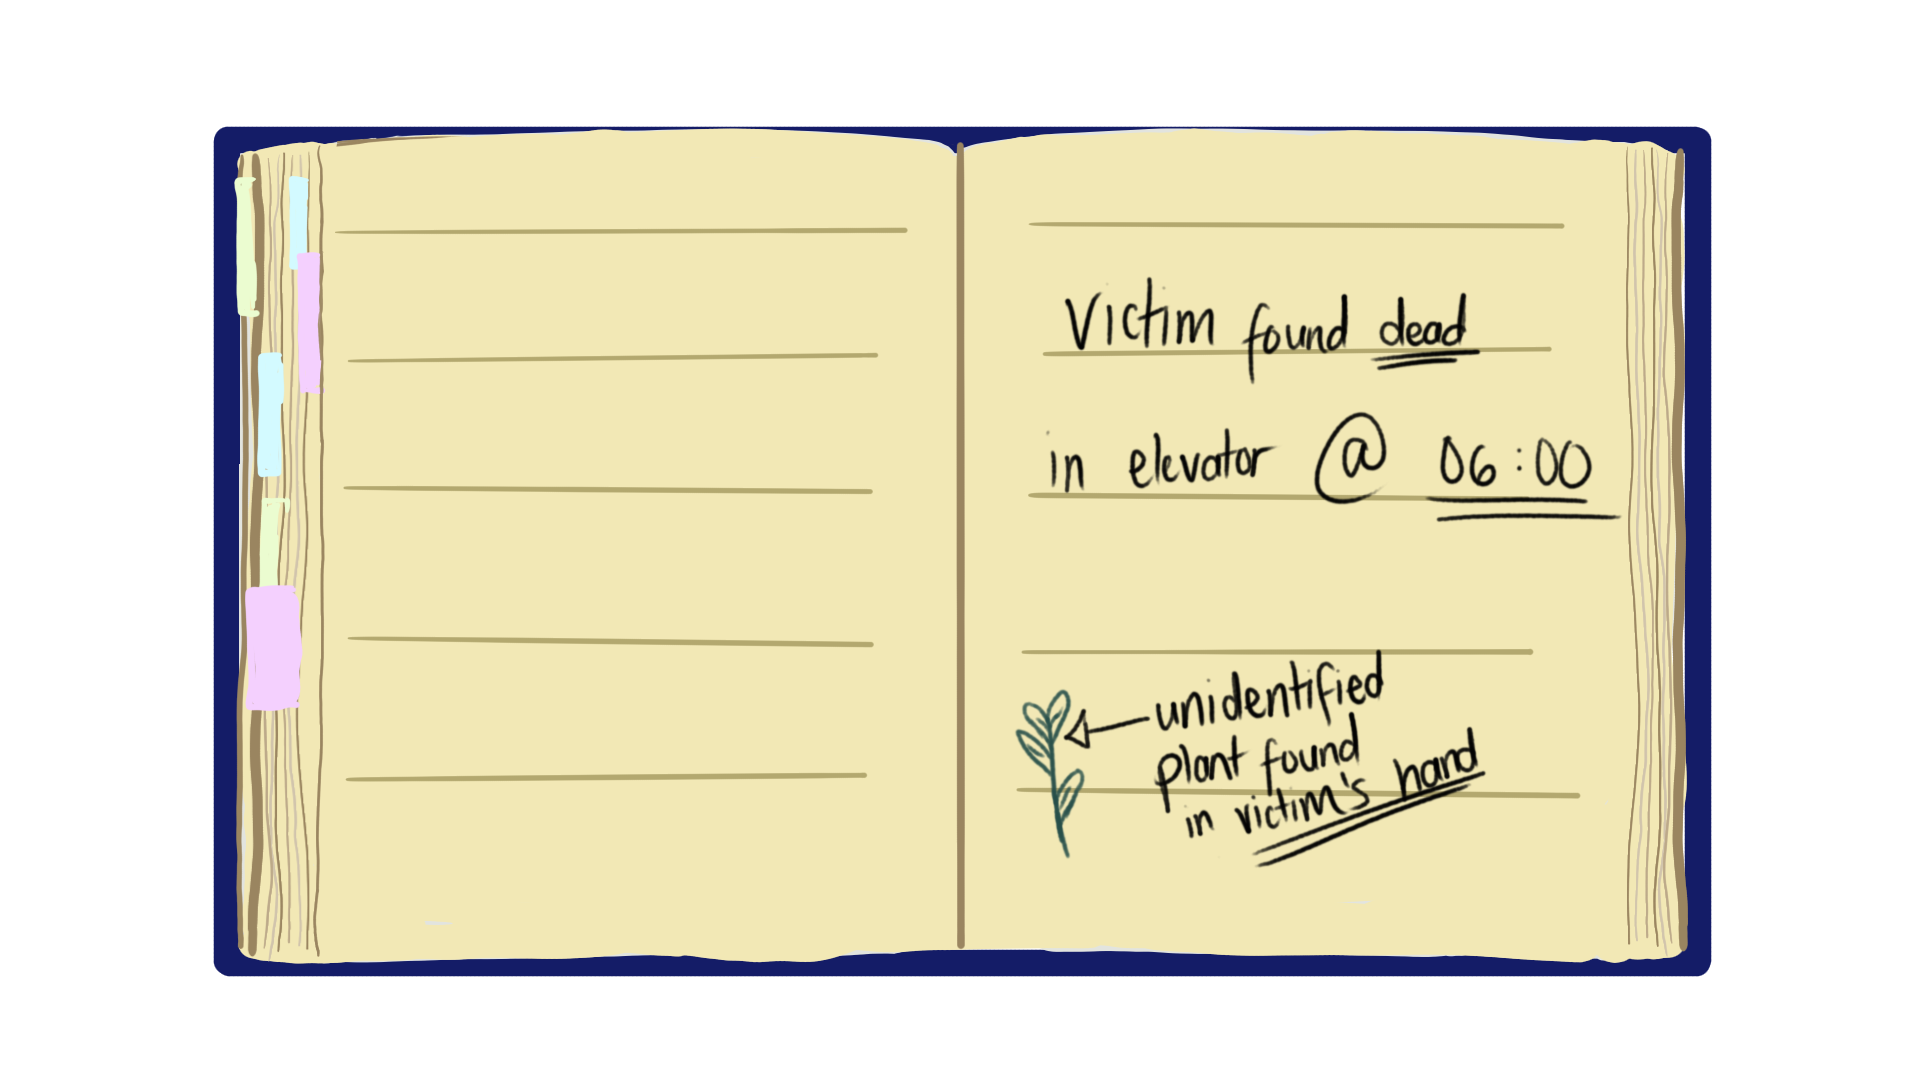 Victim found dead
in elevator @ 06:00
unidentified
plant found
in victim's hand